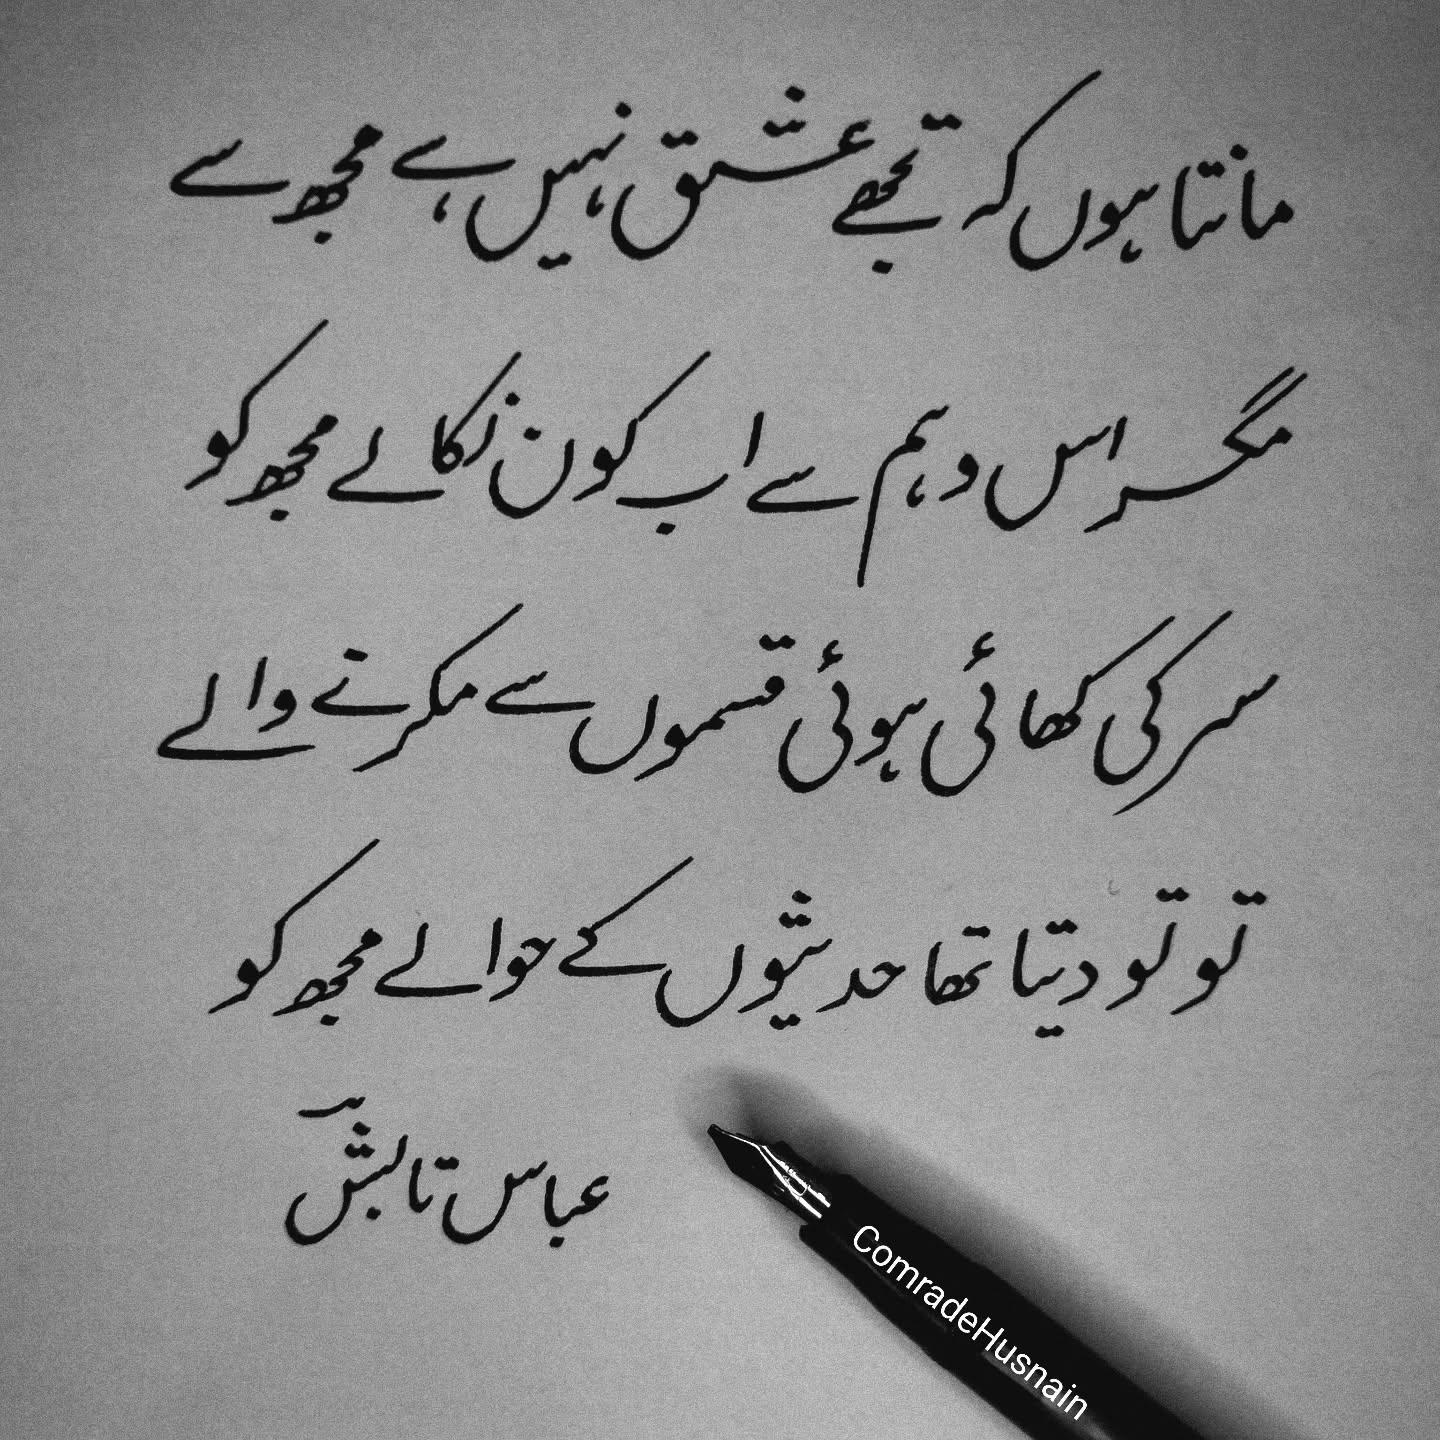 مانتا ہوں کہ تجھے عشق نہیں ہے مجھ سے
مگر اس وہم سے اب کون نکالے مجھ کو
سر کی کھائی ہوئی قسموں سے مکرنے والے
تو تو دیتا تھا حدیثوں کے حوالے مجھ کو
عباس تابش
ComradeHusnain